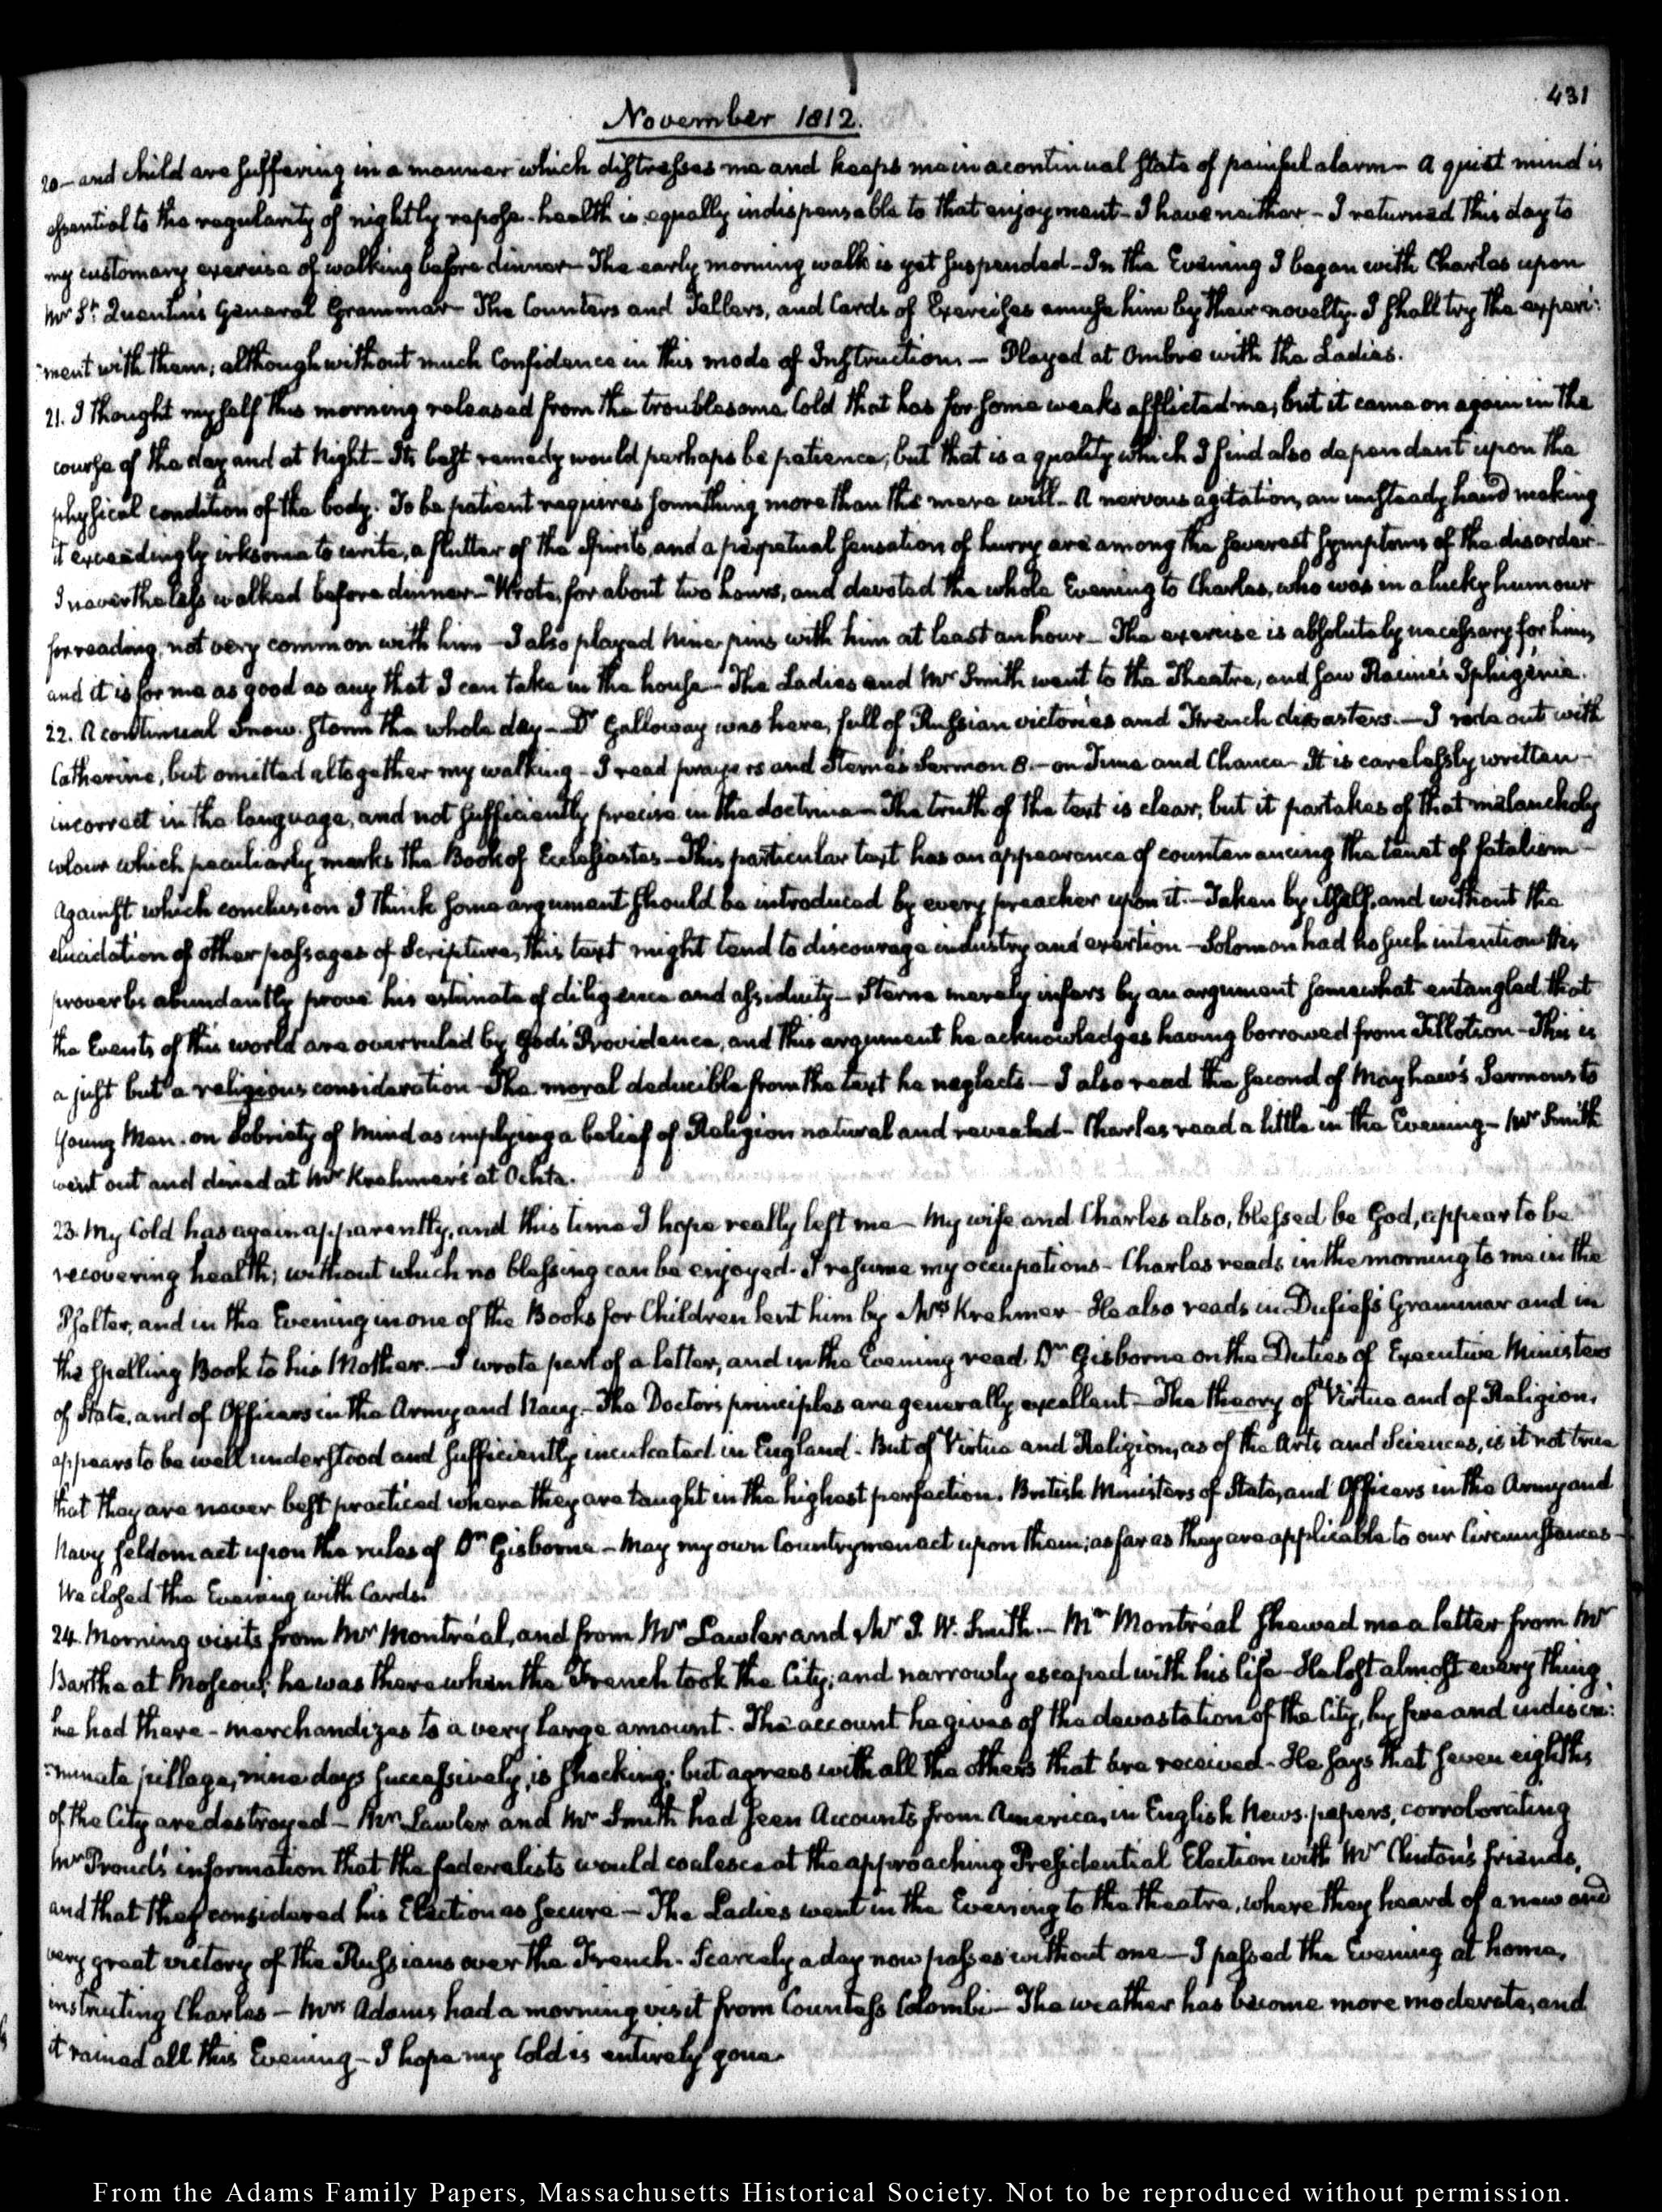 431
November 1812.
20 - and child are suffering in a manner which distresses me and keeps me in a continual state of painful alarm - A quiet mind is
essential to the regularity of nightly repose - health is equally indispensable to that enjoyment - I have neither - I returned this day to
my customary exercise of walking before dinner - The early morning walk is yet suspended - In the Evening I began with Charles upon
Mr. St. Quentin's General Grammar - The Counters and Tellers, and Cards of Exercises amuse him by their novelty. I shall try the experi:
:ment with them; although without much Confidence in this mode of Instruction. - Played at Ombre with the Ladies.
21. I thought myself this morning released from the troublesome Cold that has for some weeks afflicted me; but it came on again in the
course of the day and at Night - Its best remedy would perhaps be patience; but that is a quality which I find also dependent upon the
physical condition of the body. To be patient requires something more than the mere will - A nervous agitation, an unsteady hand making
it exceedingly irksome to write, a flutter of the Spirits, and a perpetual sensation of hurry are among the severest symptoms of the disorder -
I nevertheless walked before dinner - Wrote, for about two hours, and devoted the whole Evening to Charles, who was in a lucky humour
for reading, not very common with him - I also played Nine-pins with him at least an hour - The exercise is absolutely necessary for him,
and it is for me as good as any that I can take in the house - The Ladies and Mr Smith went to the Theatre, and saw Racine's Iphigénie.
22. A continual Snow-storm the whole day - Dr Galloway was here, full of Russian victories and French disasters. - I rode out with
Catherine, but omitted altogether my walking - I read prayers and Sterne's Sermon 8. - on Time and Chance - It is carelessly written -
incorrect in the language, and not sufficiently precise in the doctrine - The truth of the text is clear, but it partakes of that melancholy
colour which peculiarly marks the Book of Ecclesiastes - This particular text has an appearance of countenancing the tenet of fatalism -
Against which conclusion I think some argument should be introduced by every preacher upon it. - Taken by itself, and without the
elucidation of other passages of Scripture, this text might tend to discourage industry and exertion - Solomon had no such intention his
proverbs abundantly prove his estimate of diligence and assiduity - Sterne merely infers by an argument somewhat entangled, that
the Events of this world are overruled by God's Providence, and this argument he acknowledges having borrowed from Tillotson - This is
a just but a religious consideration - The moral deducible from the text he neglects - I also read the second of Mayhew's Sermons to
Young Men. on Sobriety of Mind as implying a belief of Religion natural and revealed - Charles read a little in the Evening - Mr Smith
went out and dined at Mr Krehmer's at Ochta.
23. My Cold has again apparently, and this time I hope really left me - My wife and Charles also, blessed be God, appear to be
recovering health; without which no blessing can be enjoyed. I resume my occupations - Charles reads in the morning to me in the
Psalter, and in the Evening in one of the Books for Children lent him by Mrs Krehmer - He also reads in Dufief's Grammar and in
the Spelling Book to his Mother. - I wrote part of a letter, and in the Evening read Dr Gisborne on the Duties of Executive Ministers
of State, and of Officers in the Army and Navy. - The Doctor's principles are generally excellent - The theory of Virtue and of Religion,
appears to be well understood and sufficiently inculcated in England. But of Virtue and Religion, as of the Arts and Sciences, is it not true
that they are never best practiced where they are taught in the highest perfection. British Ministers of State, and Officers in the Army and
Navy seldom act upon the rules of Dr Gisborne - May my own Countrymen act upon them; as far as they are applicable to our Circumstances -
We closed the Evening with Cards.
24. Morning visits from Mr Montréal, and from Mr Lawler and Mr I. W. Smith. - Mr Montréal shewed me a letter from Mr
Barthe at Moscow; he was there when the French took the City; and narrowly escaped with his life - He lost almost every thing
he had there - merchandizes to a very large amount. The account he gives of the devastation of the City, by fire and indiscri:
:minate pillage, nine days successively, is shocking; but agrees with all the others that are received - He says that seven eighths
of the City are destroyed - Mr Lawler and Mr Smith had seen Accounts from America, in English News-papers, corroborating
Mr Proud's information that the federalists would coalesce at the approaching Presidential Election with Mr Clinton's friends,
and that they considered his Election as secure - The Ladies went in the Evening to the theatre, where they heard of a new and
very great victory of the Russians over the French. Scarcely a day now passes without one - I passed the Evening at home,
instructing Charles - Mrs Adams had a morning visit from Countess Colombi - The weather has become more moderate, and
it rained all this Evening - I hope my Cold is entirely gone.
From the Adams Family Papers, Massachusetts Historical Society. Not to be reproduced without permission.